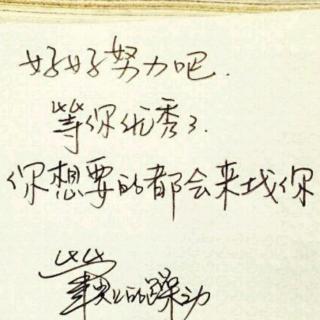 好好努力吧.
等你优秀了.
你想要的都会来找你
的躁动